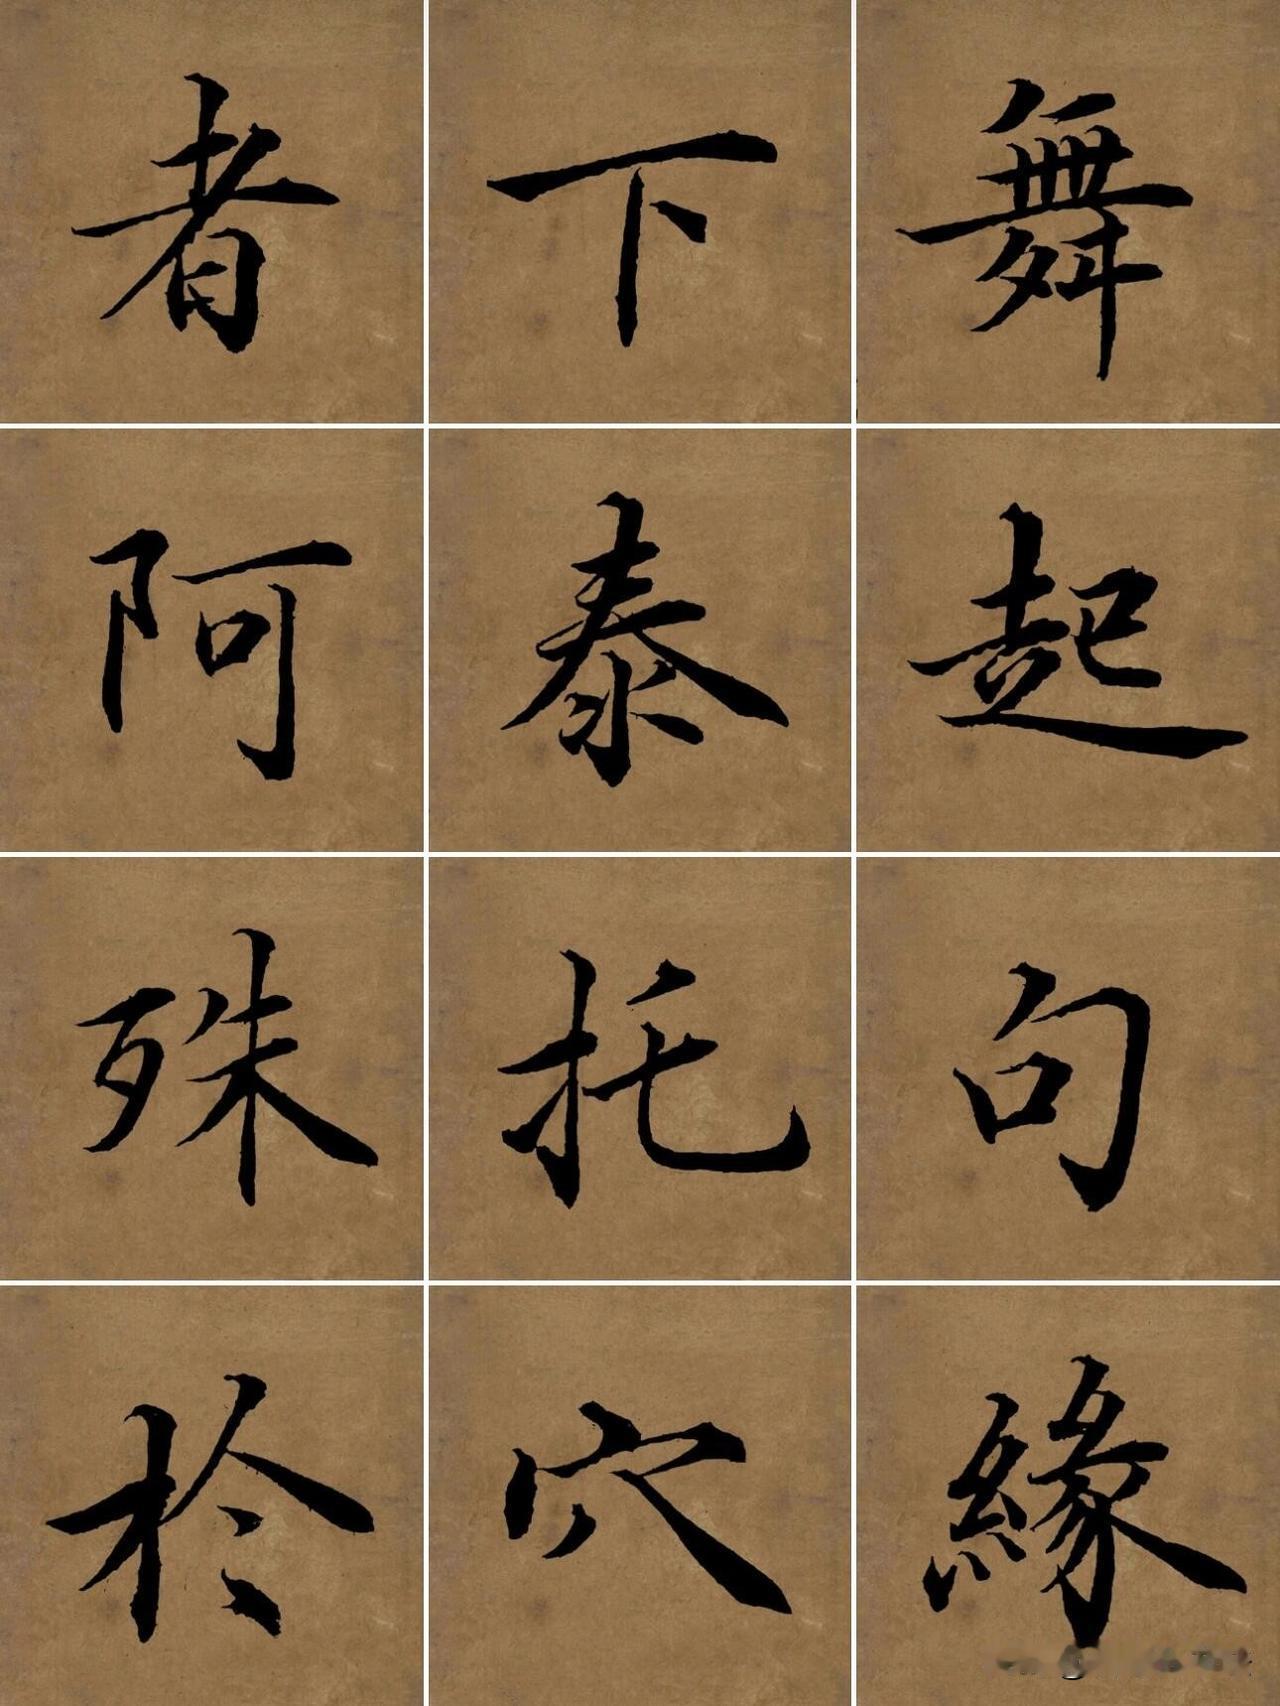 者下舞
阿泰起
殊托句
於穴緣